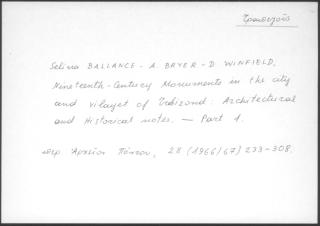 Τραπεζοῦς
Selina BALLANCE - A. BRYER - D. WINFIELD,
Nineteenth-Century Monuments in the city
and vilayet of Trebizond: Architectural
and Historical notes. — Part 1.
περ. Ἀρχεῖον Πόντου, 28 (1966/67) 233-308.